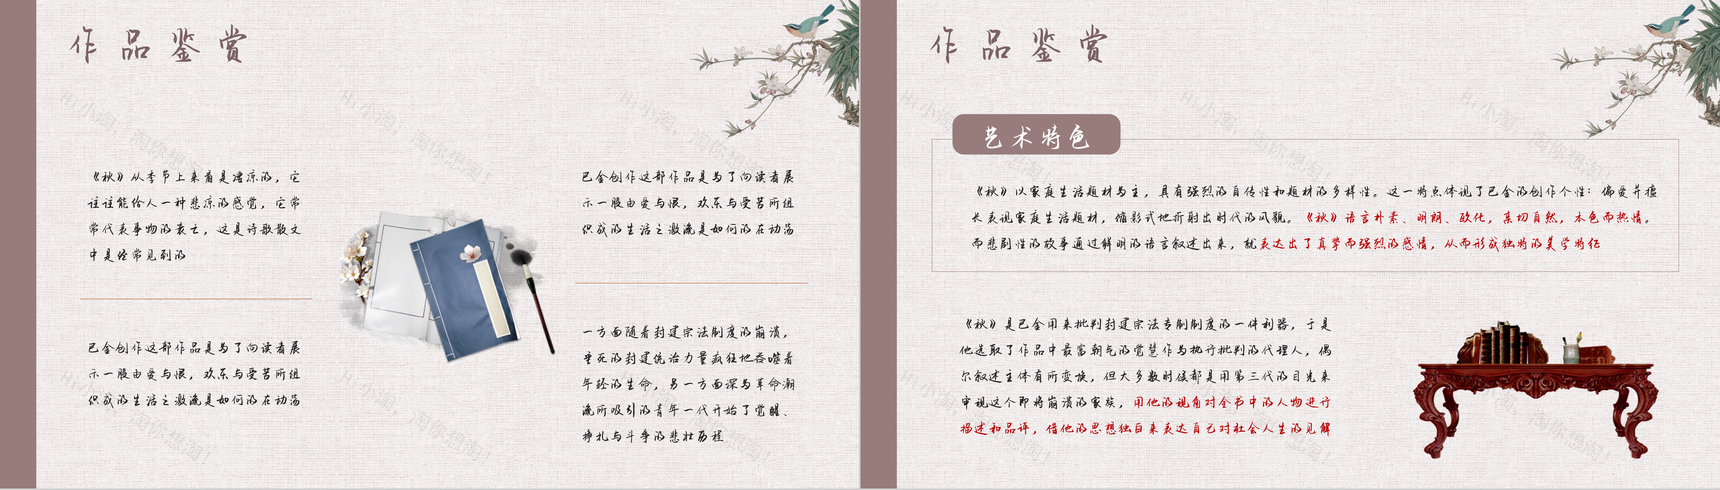 作品鉴赏
《秋》从季节上来看是凄凉的，它
往往能给人一种悲凉的感觉，它常
常代表事物的衰亡，这是诗歌散文
中是经常见到的
巴金创作这部作品是为了向读者展
示一股由爱与恨，欢乐与受苦所组
织成的生活之激流是如何的在动荡
巴金创作这部作品是为了向读者展
示一股由爱与恨，欢乐与受苦所组
织成的生活之激流是如何的在动荡
一方面随着封建宗法制度的崩溃，
垂死的封建统治力量疯狂地吞噬着
年轻的生命，另一方面深与革命潮
流所吸引的青年一代开始了觉醒、
挣扎与斗争的悲壮历程
作品鉴赏
艺术特色
《秋》以家庭生活题材为主，具有强烈的自传性和题材的多样性。这一特点体现了巴金的创作个性：偏爱并擅
长表现家庭生活题材，缩影式地折射出时代的风貌。《秋》语言朴素、明朗、欧化，亲切自然，本色而热情。
而悲剧性的故事通过鲜明的语言叙述出来，就表达出了真挚而强烈的感情，从而形成独特的美学特征
《秋》是巴金用来批判封建宗法专制制度的一件利器，于是
他选取了作品中最富朝气的觉慧作为执行批判的代理人，偶
尔叙述主体有所变换，但大多数时候都是用第三代的目光来
审视这个即将崩溃的家族，用他的视角对全书中的人物进行
描述和品评，借他的思想独白来表达自己对社会人生的见解
Hi小淘，淘你想淘！